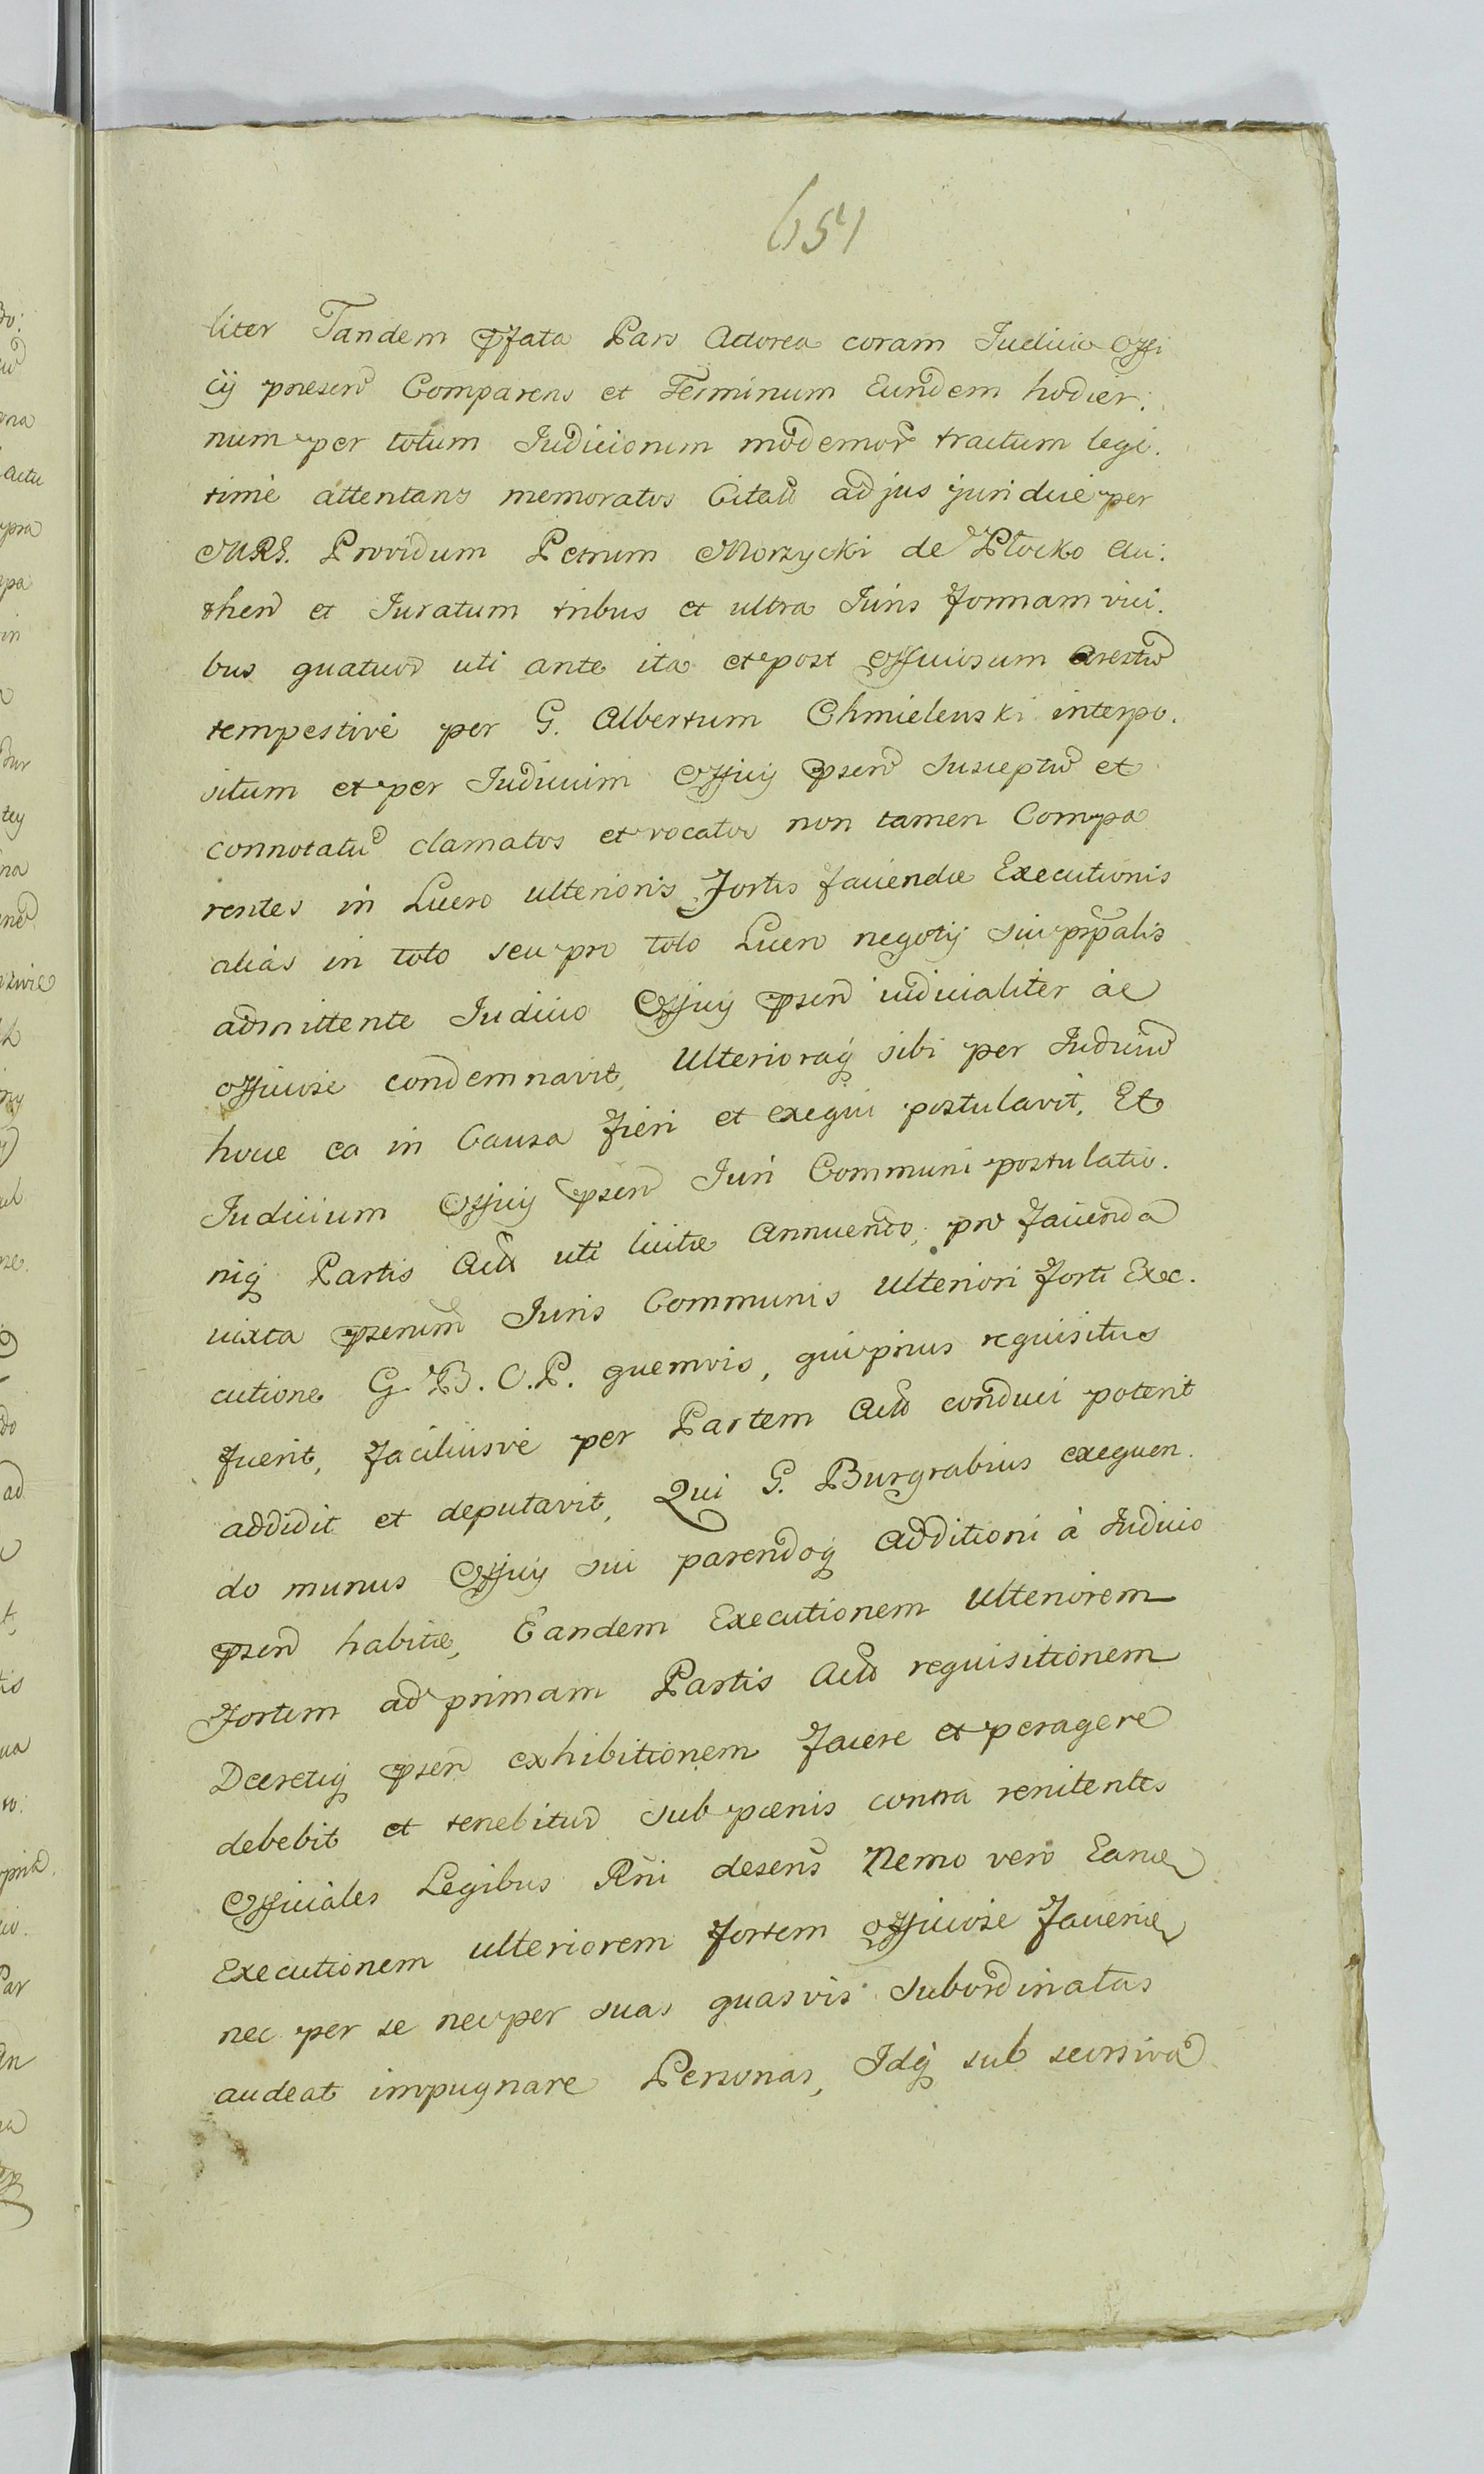 651
liter Tandem Pfata Pars Actorea coram Judicio Offi
cij presen Comparens et Terminum Eundem hodier:
num per totum Judiciorum modernor tractum legi.
time attentans memoratos Citatos ad jus juridice per
MRS. Providum Petrum Morzycki de Płocko Au:
then et Juratum tribus et ultra Juris formam vici.
bus quatuor uti ante ita et post Officiosum Arestum
tempestive per G. Albertum Chmielewski interpo.
situm et per Judicium Officij psen susceptum et
connotatu clamatos et vocatos non tamen Compa
rentes in Lucro ulterioris fortis faciendæ Executionis
alias in toto seu pro toto Lucro negotij sui prpalis
admittente Judicio Officij psen iudicialiter ac
officiose condemnavit, Ulterioraq sibi per Judicium
hocce ea in Causa fieri et exequi postulavit. Et
Judicium Officij psen Juri Communi postulatio.
niq Partis Act uti licitæ Annuendo, pro facienda
iuxta psenum Juris Communis Ulteriori forti Exe.
cutione G. B. C. P. quemvis, qui prius requisitus
fuerit, faciliusve per Partem Act conduci poterit
addidit et deputavit, Qui G. Burgrabius exequen.
do munus Officij sui parendoq Additioni à Judicio
psen habitæ, Eandem Executionem Ulteriorem
fortem ad primam Partis Act requisitionem
Decretiq psen exhibitionem facere et peragere
debebit et tenebitur sub pœnis contra renitentes
Officiales Legibus Rni desens Nemo vero Eance
Executionem ulteriorem fortem officiose facience
nec per se nec per suas quasvis subordinatas
audeat impugnare Personas, Idq sub seorsiva